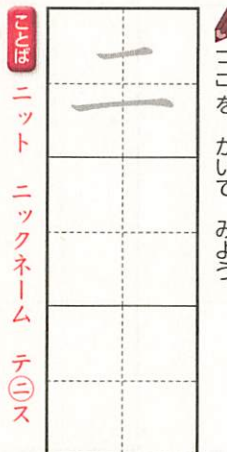 「ニ」を かいて みよう
ニ
ことば ニット ニックネーム テニス